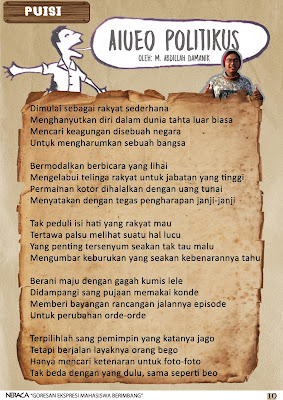 PUISI
AIUEO POLITIKUS
OLEH: M. ABDILLAH DAMANIK
Dimulai sebagai rakyat sederhana
Menghanyutkan diri dalam dunia tahta luar biasa
Mencari keagungan disebuah negara
Untuk mengharumkan sebuah bangsa
Bermodalkan berbicara yang lihai
Mengelabui telinga rakyat untuk jabatan yang tinggi
Permainan kotor dihalalkan dengan uang tunai
Menyatakan dengan tegas pengharapan janji-janji
Tak peduli isi hati yang rakyat mau
Tertawa palsu melihat suatu hal lucu
Yang penting tersenyum seakan tak tau malu
Mengumbar keburukan yang seakan kebenarannya tahu
Berani maju dengan gagah kumis lele
Didampangi sang pujaan memakai konde
Memberi bayangan rancangan jalannya episode
Untuk perubahan orde-orde
Terpilihlah sang pemimpin yang katanya jago
Tetapi berjalan layaknya orang bego
Hanya mencari ketenaran untuk foto-foto
Tak beda dengan yang dulu, sama seperti beo
NERACA "GORESAN EKSPRESI MAHASISWA BERIMBANG"
10